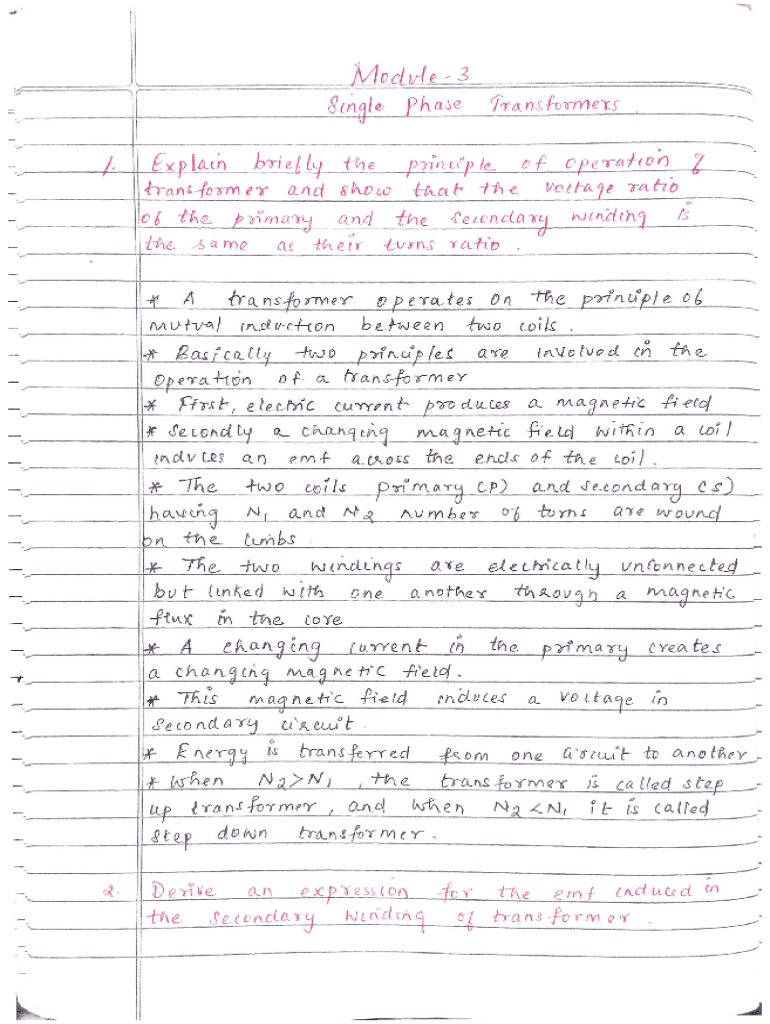 Module - 3
Single Phase Transformers
1. Explain briefly the principle of operation of
transformer and show that the voltage ratio
of the primary and the secondary winding is
the same as their turns ratio.
* A transformer operates on the principle of
mutual induction between two coils.
* Basically two principles are involved in the
operation of a transformer
* First, electric current produces a magnetic field
* Secondly a changing magnetic field within a coil
induces an emf across the ends of the coil.
* The two coils primary (P) and secondary (S)
having N1 and N2 number of turns are wound
on the limbs
* The two windings are electrically unconnected
but linked with one another through a magnetic
flux in the core
* A changing current in the primary creates
a changing magnetic field.
* This magnetic field induces a voltage in
secondary circuit.
* Energy is transferred from one circuit to another
* When N2>N1, the transformer is called step
up transformer, and when N2<N1 it is called
step down transformer.
2. Derive an expression for the emf induced in
the secondary winding of transformer.